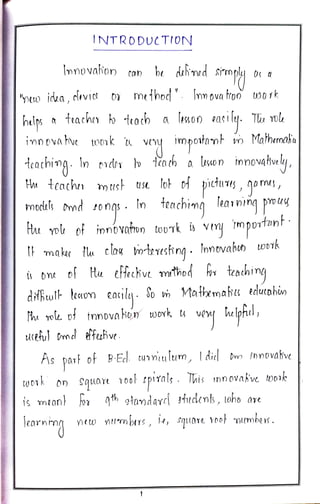 INTRODUCTION
Innovation can be defined simply as a
"new idea, device or method". Innovation work
helps a teacher to teach a lesson easily. The role
innovative work is very important in Mathematics
teaching. In order to teach a lesson innovatively,
the teacher must use lot of pictures, games,
models and songs. In teaching learning process
the role of innovation work is very important.
It makes the class interesting. Innovation work
is one of the effective method for teaching
difficult lesson easily. So in Mathematics education
the role of innovation work is very helpful,
useful and effective.
As part of B.Ed. curriculum, I did an innovative
work on square root spirals. This innovative work
is meant for 9th standard students, who are
learning new numbers, ie, square root numbers.
1